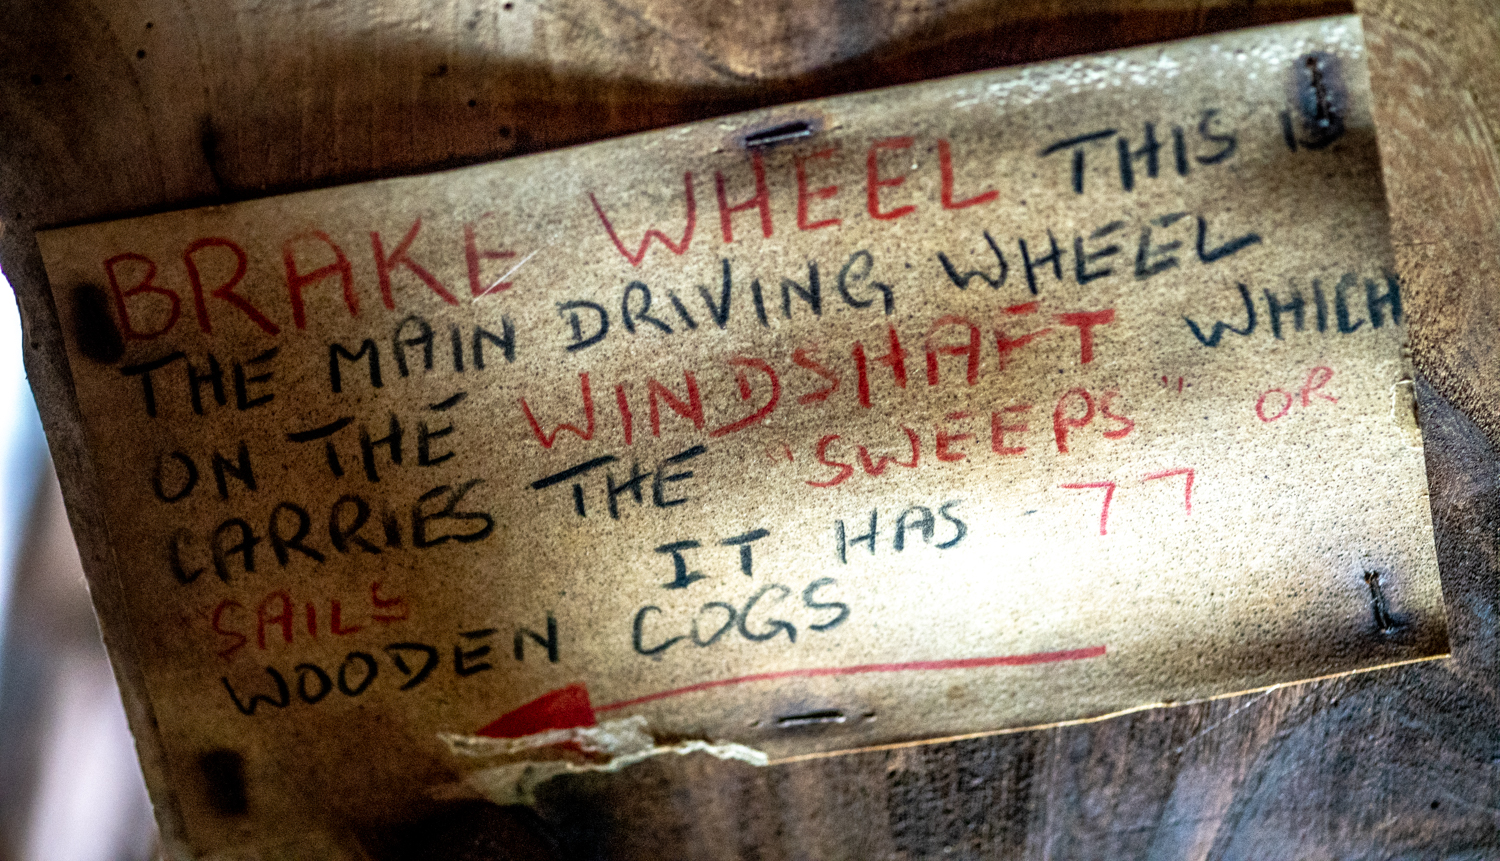 BRAKE WHEEL THIS IS
THE MAIN DRIVING WHEEL
ON THE WINDSHAFT WHICH
CARRIES THE "SWEEPS" OR
"SAILS IT HAS - 77
WOODEN COGS